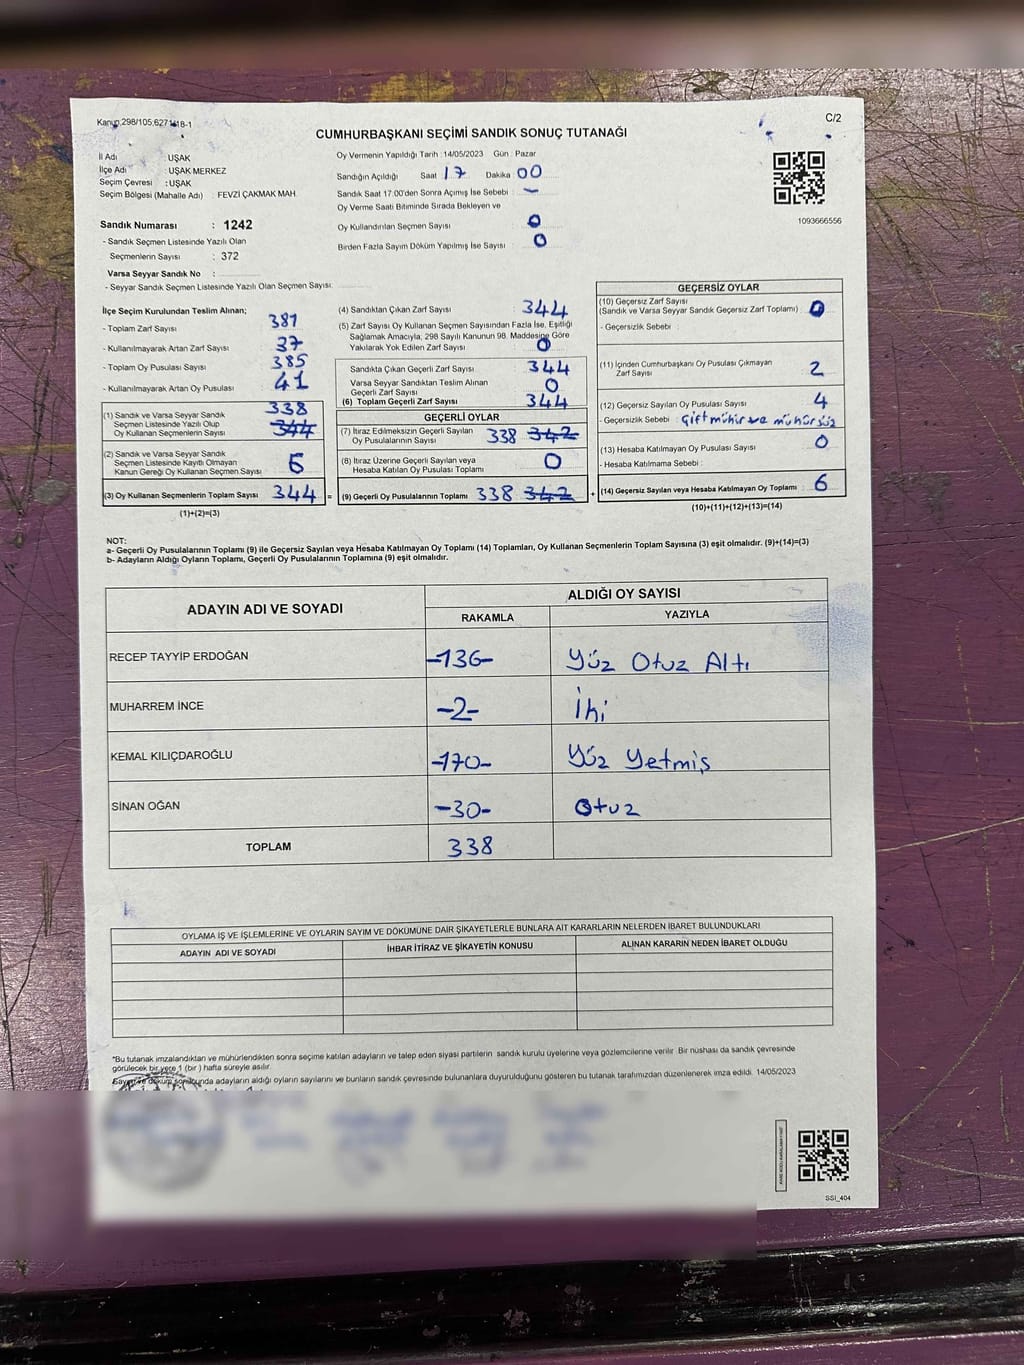 Kanun:298/105,6271/18-1
C/2
CUMHURBAŞKANI SEÇİMİ SANDIK SONUÇ TUTANAĞI
İl Adı : UŞAK
İlçe Adı : UŞAK MERKEZ
Seçim Çevresi : UŞAK
Seçim Bölgesi (Mahalle Adı) : FEVZİ ÇAKMAK MAH.
Oy Vermenin Yapıldığı Tarih : 14/05/2023 Gün : Pazar
Sandığın Açıldığı Saat 17 Dakika 00
Sandık Saat 17:00'den Sonra Açımış İse Sebebi : -
Oy Verme Saati Bitiminde Sırada Bekleyen ve
Oy Kullandırılan Seçmen Sayısı : 0
Birden Fazla Sayım Döküm Yapılmış İse Sayısı : 0
1093666556
Sandık Numarası : 1242
- Sandık Seçmen Listesinde Yazılı Olan
Seçmenlerin Sayısı : 372
Varsa Seyyar Sandık No :
- Seyyar Sandık Seçmen Listesinde Yazılı Olan Seçmen Sayısı:
İlçe Seçim Kurulundan Teslim Alınan;
- Toplam Zarf Sayısı 381
- Kullanılmayarak Artan Zarf Sayısı 37
- Toplam Oy Pusulası Sayısı 385
- Kullanılmayarak Artan Oy Pusulası 41
(1) Sandık ve Varsa Seyyar Sandık
Seçmen Listesinde Yazılı Olup
Oy Kullanan Seçmenlerin Sayısı 338 344
(2) Sandık ve Varsa Seyyar Sandık
Seçmen Listesinde Kayıtlı Olmayan
Kanun Gereği Oy Kullanan Seçmen Sayısı 6
(3) Oy Kullanan Seçmenlerin Toplam Sayısı 344 =
(1)+(2)=(3)
(4) Sandıktan Çıkan Zarf Sayısı 344
(5) Zarf Sayısı Oy Kullanan Seçmen Sayısından Fazla İse, Eşitliği
Sağlamak Amacıyla, 298 Sayılı Kanunun 98. Maddesine Göre
Yakılarak Yok Edilen Zarf Sayısı 0
Sandıkta Çıkan Geçerli Zarf Sayısı 344
Varsa Seyyar Sandıktan Teslim Alınan
Geçerli Zarf Sayısı 0
(6) Toplam Geçerli Zarf Sayısı 344
GEÇERLİ OYLAR
(7) İtiraz Edilmeksizin Geçerli Sayılan
Oy Pusulalarının Sayısı 338 342
(8) İtiraz Üzerine Geçerli Sayılan veya
Hesaba Katılan Oy Pusulası Toplamı 0
(9) Geçerli Oy Pusulalarının Toplamı 338 342 +
GEÇERSİZ OYLAR
(10) Geçersiz Zarf Sayısı
(Sandık ve Varsa Seyyar Sandık Geçersiz Zarf Toplamı) : 0
- Geçersizlik Sebebi :
(11) İçinden Cumhurbaşkanı Oy Pusulası Çıkmayan
Zarf Sayısı 2
(12) Geçersiz Sayılan Oy Pusulası Sayısı 4
- Geçersizlik Sebebi : Çift mühür ve mühürsüz
(13) Hesaba Katılmayan Oy Pusulası Sayısı 0
- Hesaba Katılmama Sebebi :
(14) Geçersiz Sayılan veya Hesaba Katılmayan Oy Toplamı : 6
(10)+(11)+(12)+(13)=(14)
NOT:
a- Geçerli Oy Pusulalarının Toplamı (9) ile Geçersiz Sayılan veya Hesaba Katılmayan Oy Toplamı (14) Toplamları, Oy Kullanan Seçmenlerin Toplam Sayısına (3) eşit olmalıdır. (9)+(14)=(3)
b- Adayların Aldığı Oyların Toplamı, Geçerli Oy Pusulalarının Toplamına (9) eşit olmalıdır.
ADAYIN ADI VE SOYADI
ALDIĞI OY SAYISI
RAKAMLA YAZIYLA
RECEP TAYYİP ERDOĞAN -136- Yüz Otuz Altı
MUHARREM İNCE -2- İki
KEMAL KILIÇDAROĞLU -170- Yüz Yetmiş
SİNAN OĞAN -30- Otuz
TOPLAM 338
OYLAMA İŞ VE İŞLEMLERİNE VE OYLARIN SAYIM VE DÖKÜMÜNE DAİR ŞİKAYETLERLE BUNLARA AİT KARARLARIN NELERDEN İBARET BULUNDUKLARI
ADAYIN ADI VE SOYADI İHBAR İTİRAZ VE ŞİKAYETİN KONUSU ALINAN KARARIN NEDEN İBARET OLDUĞU
"Bu tutanak imzalandıktan ve mühürlendikten sonra seçime katılan adayların ve talep eden siyasi partilerin sandık kurulu üyelerine veya gözlemcilerine verilir. Bir nüshası da sandık çevresinde
görülecek bir yere 1 (bir) hafta süreyle asılır.
Sayım ve döküm sonucunda adayların aldığı oyların sayılarını ve bunların sandık çevresinde bulunanlara duyurulduğunu gösteren bu tutanak tarafımızdan düzenlenerek imza edildi. 14/05/2023
SSI_404